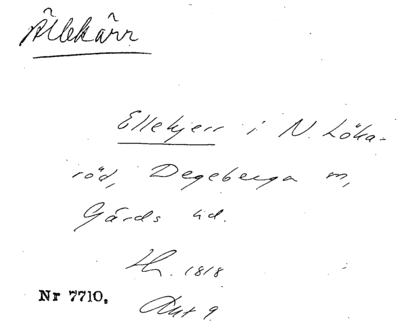 Ällekärr
Ellekjerr i N. Löka-
röd, Degeberga m,
Gärds hd.
1818
Nr 7710.
Akt 9.